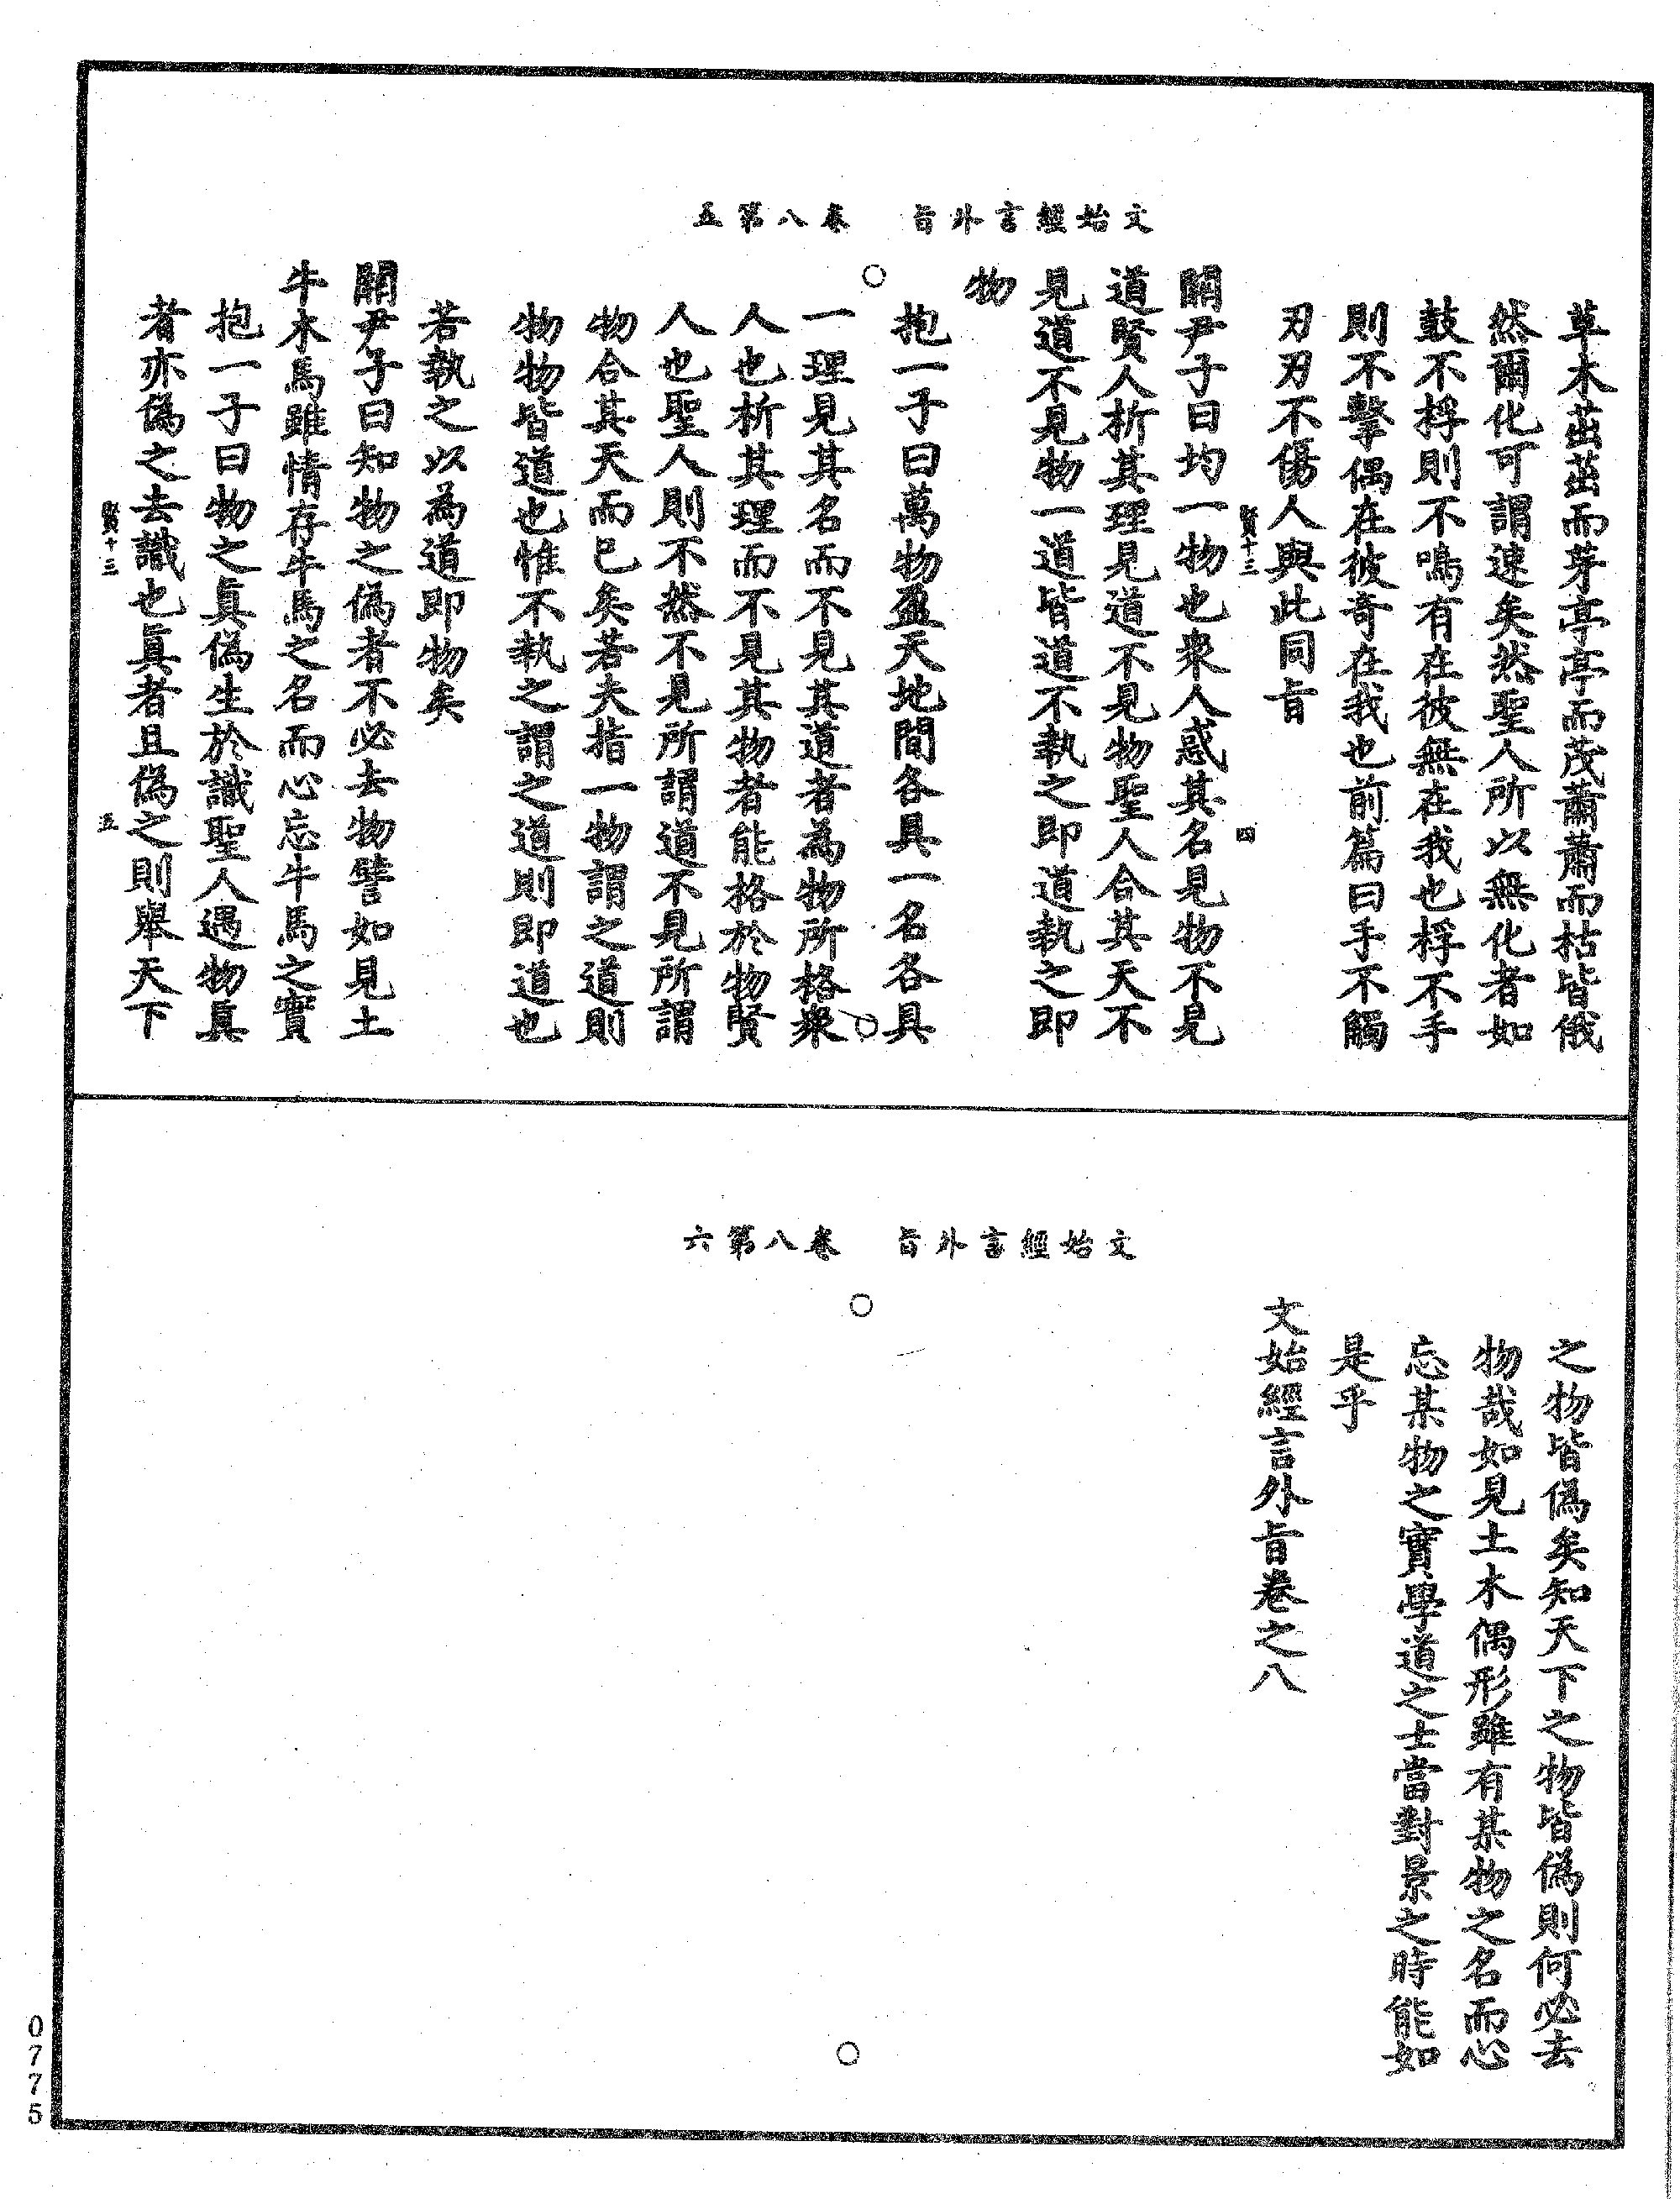 文始經言外旨　卷八第五
草木茁茁而芽亭亭而茂蕭蕭而枯皆俄
然爾化可謂速矣然聖人所以無化者如
鼓不桴則不鳴有在彼無在我也桴不手
則不擊偶在彼奇在我也前篇曰手不觸
刃刃不傷人與此同旨
賢十三　四
關尹子曰均一物也眾人惑其名見物不見
道賢人析其理見道不見物聖人合其天不
見道不見物一道皆道不執之即道執之即
物
抱一子曰萬物盈天地間各具一名各具
一理見其名而不見其道者為物所格眾
人也析其理而不見其物者能格於物賢
人也聖人則不然不見所謂道不見所謂
物合其天而已矣若夫指一物謂之道則
物物皆道也惟不執之謂之道則即道也
若執之以為道即物矣
關尹子曰知物之偽者不必去物譬如見土
牛木馬雖情存牛馬之名而心忘牛馬之實
抱一子曰物之真偽生於識聖人遇物真
者亦偽之去識也真者且偽之則舉天下
賢十三　五
文始經言外旨　卷八第六
之物皆偽矣知天下之物皆偽則何必去
物哉如見土木偶形雖有某物之名而心
忘某物之實學道之士當對景之時能如
是乎
文始經言外旨卷之八
0775